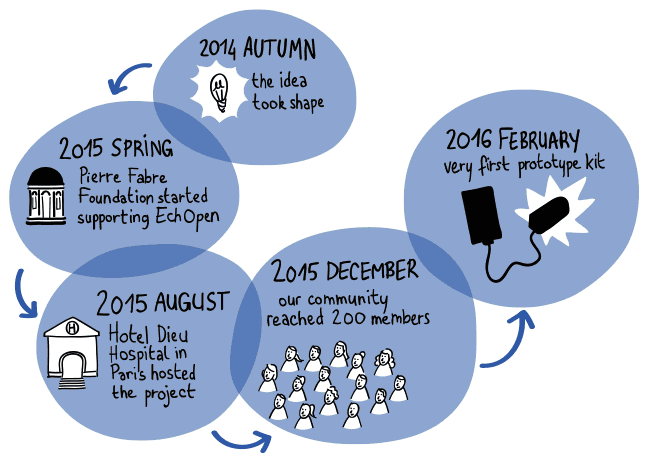 2014 AUTUMN
the idea
took shape
2015 SPRING
Pierre Fabre
Foundation started
supporting EchOpen
2015 AUGUST
H
Hotel Dieu
Hospital in
Paris hosted
the project
2015 DECEMBER
our community
reached 200 members
2016 FEBRUARY
very first prototype kit